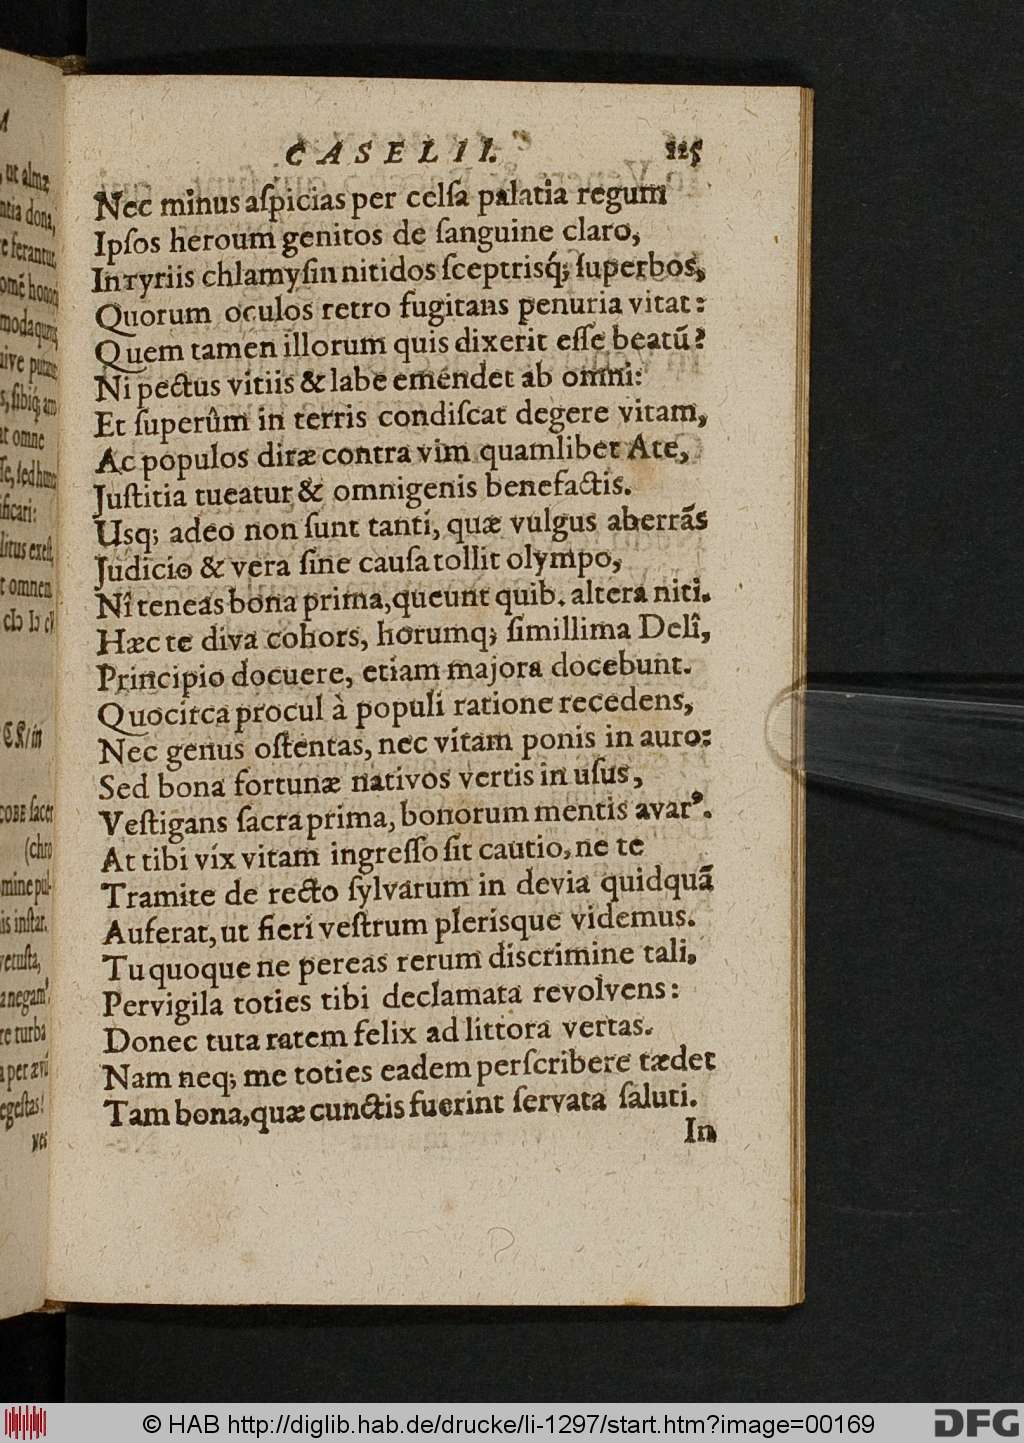 CASELII. 125
Nec minus aſpicias per celſa palatia regum
Ipſos heroum genitos de ſanguine claro,
In tyriis chlamyſin nitidos ſceptrisq́; ſuperbos,
Quorum oculos retro fugitans penuria vitat:
Quem tamen illorum quis dixerit eſſe beatũ?
Ni pectus vitiis & labe emendet ab omni:
Et ſuperûm in terris condiſcat degere vitam,
Ac populos diræ contra vim quamlibet Ate,
Juſtitia tueatur & omnigenis benefactis.
Usq; adeo non ſunt tanti, quæ vulgus aberrãs
Judicio & vera ſine cauſa tollit olympo,
Nî teneas bona prima, queunt quib. altera niti.
Hæc te diva cohors, horumq; ſimillima Delî,
Principio docuere, etiam majora docebunt.
Quocirca procul à populi ratione recedens,
Nec genus oſtentas, nec vitam ponis in auro:
Sed bona fortunæ nativos vertis in uſus,
Veſtigans ſacra prima, bonorum mentis avarꝰ.
At tibi vix vitam ingreſſo ſit cautio, ne te
Tramite de recto ſylvarum in devia quidquã
Auferat, ut fieri veſtrum plerisque videmus.
Tu quoque ne pereas rerum discrimine tali,
Pervigila toties tibi declamata revolvens:
Donec tuta ratem felix ad littora vertas.
Nam neq; me toties eadem perſcribere tædet
Tam bona, quæ cunctis fuerint ſervata ſaluti.
In
ut almæ
dona,
ferantur,
putant
omne
ſed hunc
omnem
in
ſacer
(chro
mine pul-
is inſtar.
vetuſta,
re turba
per ævũ
egeſtas!
nes
© HAB http://diglib.hab.de/drucke/li-1297/start.htm?image=00169
DFG